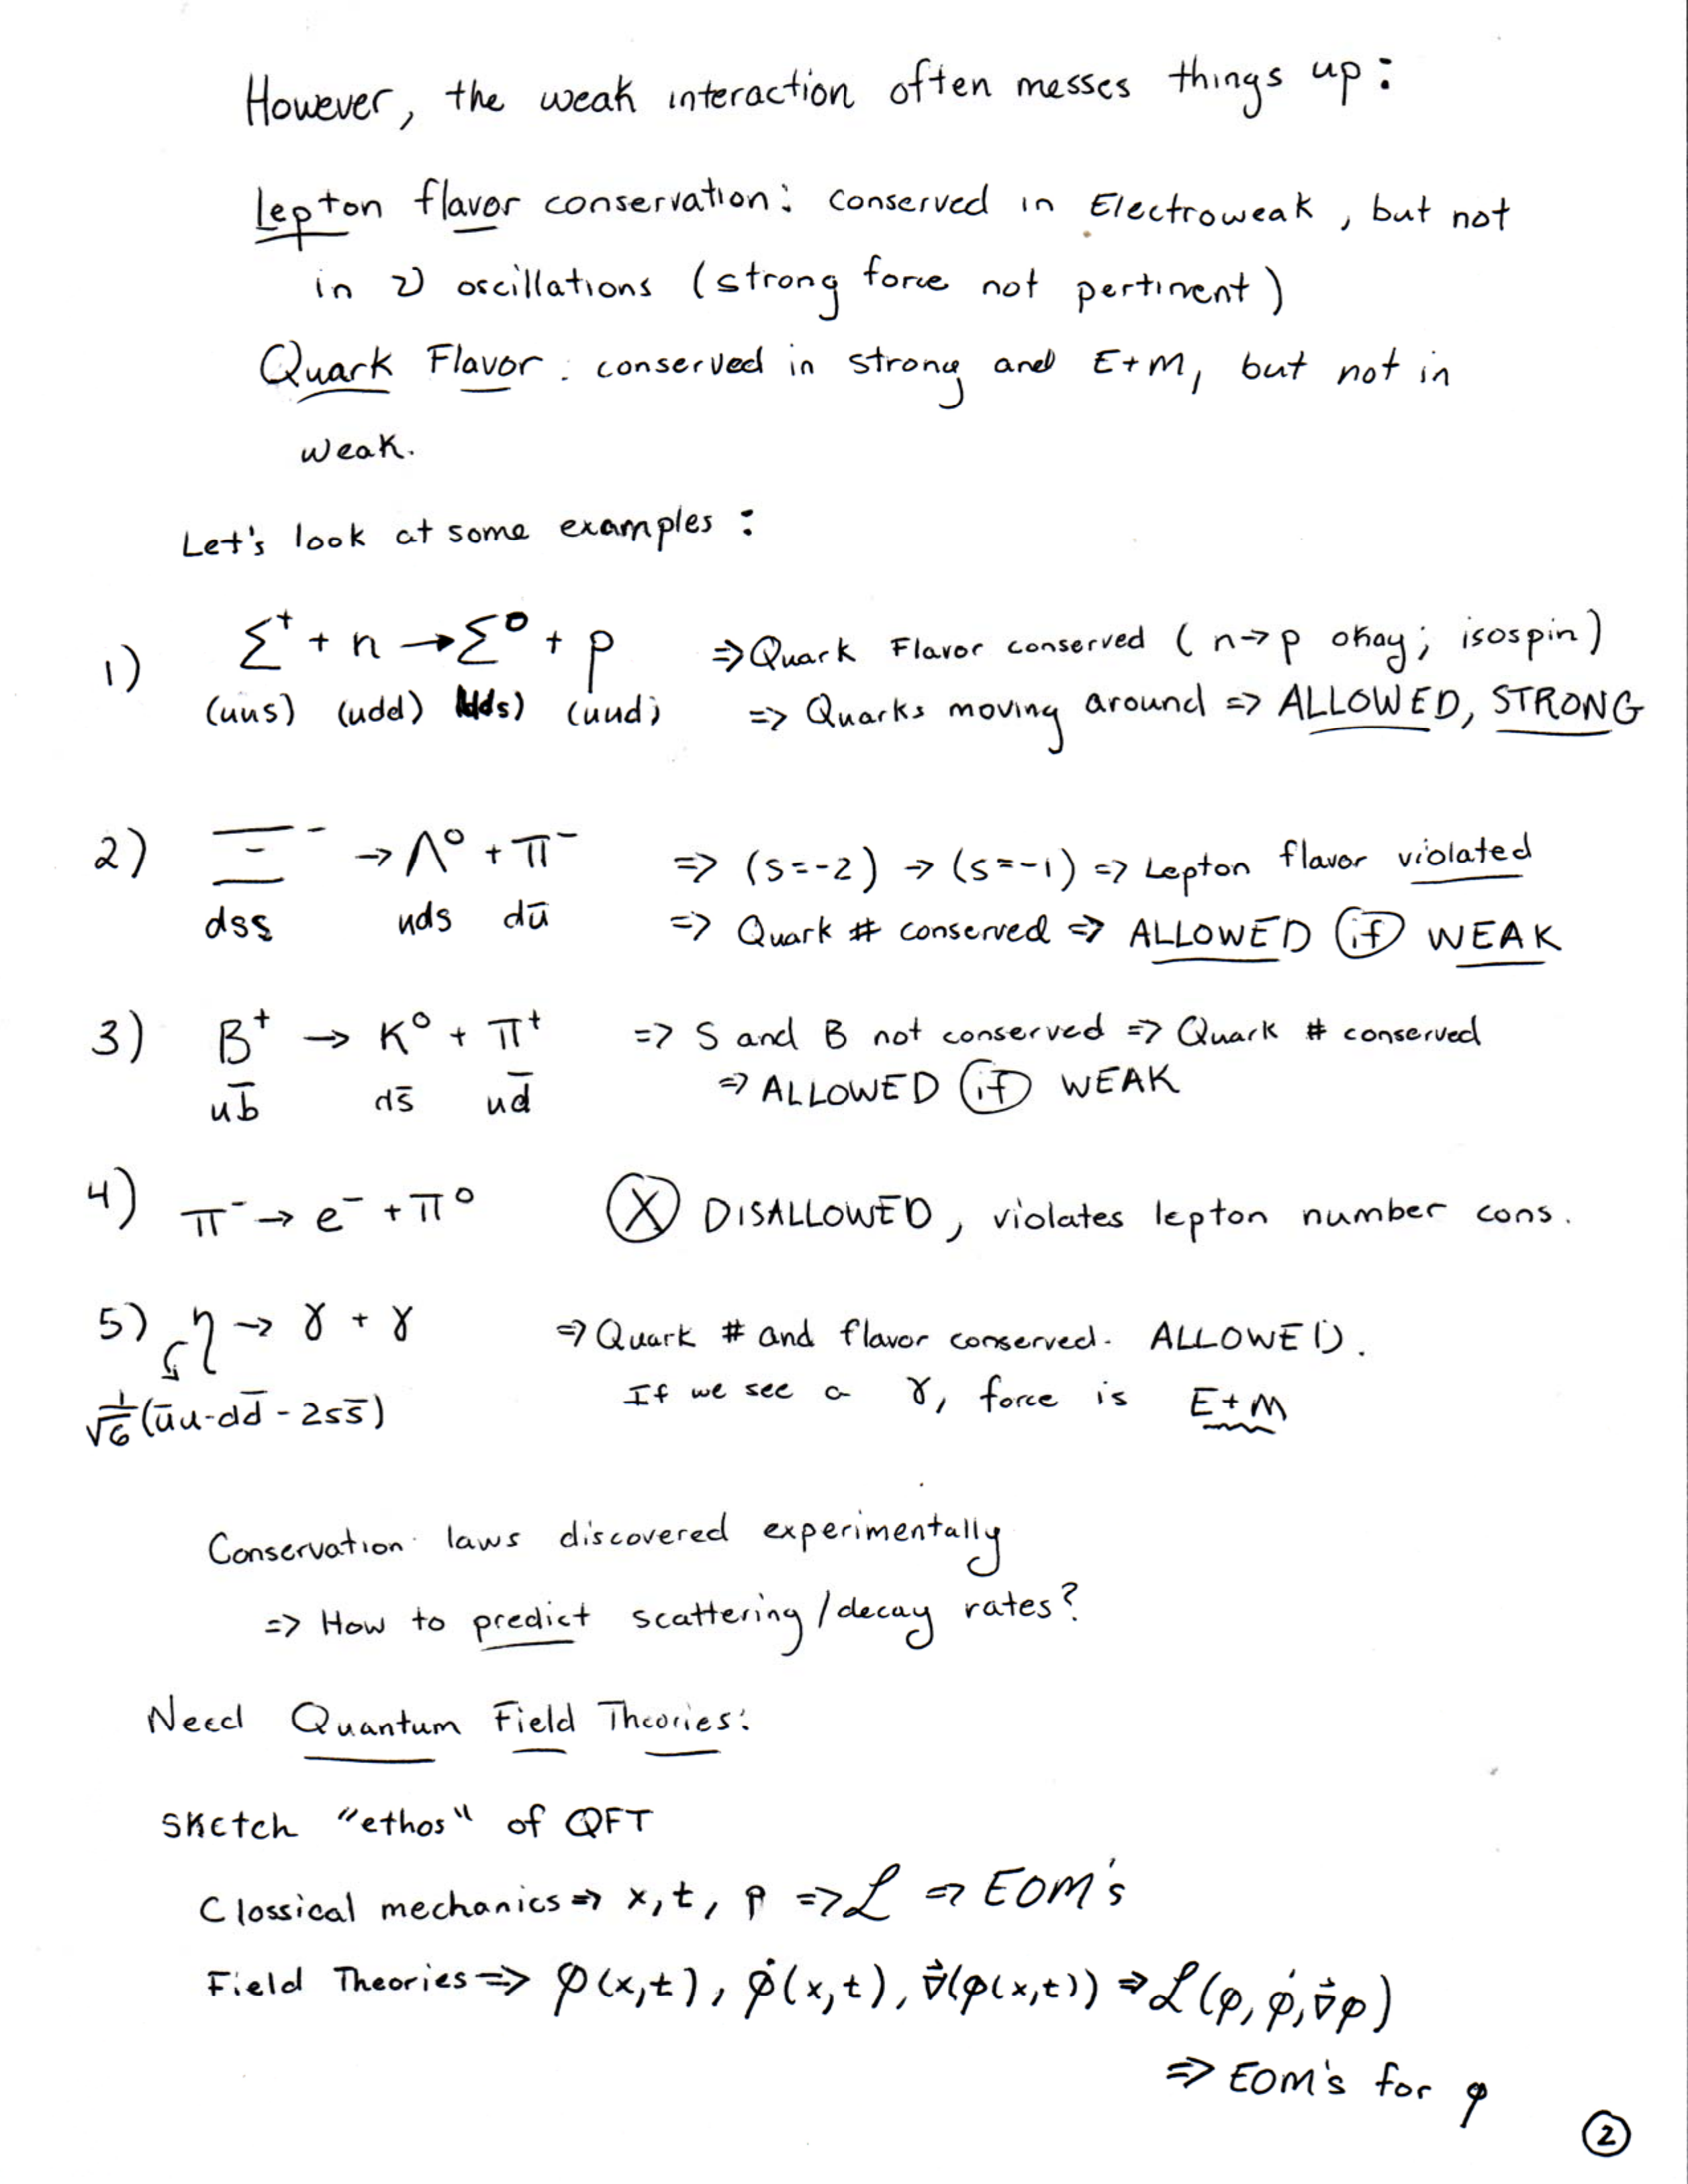 However, the weak interaction often messes things up:
Lepton flavor conservation: conserved in Electroweak, but not
in ν oscillations (strong force not pertinent)
Quark Flavor: conserved in strong and E+M, but not in
weak.
Let's look at some examples:
1) Σ⁺ + n → Σ⁰ + p ⇒ Quark Flavor conserved (n→p okay; isospin)
(uus) (udd) uds) (uud) ⇒ Quarks moving around ⇒ ALLOWED, STRONG
2) Ξ⁻ → Λ⁰ + π⁻ ⇒ (s=-2) → (s=-1) ⇒ Lepton flavor violated
dss uds dū ⇒ Quark # conserved ⇒ ALLOWED if WEAK
3) B⁺ → K⁰ + π⁺ ⇒ S and B not conserved ⇒ Quark # conserved
ub̄ ds̄ ud̄ ⇒ ALLOWED if WEAK
4) π⁻ → e⁻ + π⁰ X DISALLOWED, violates lepton number cons.
5) η → γ + γ ⇒ Quark # and flavor conserved. ALLOWED.
If we see a γ, force is E+M
1/√6 (ūu-dd̄ - 2ss̄)
Conservation laws discovered experimentally
⇒ How to predict scattering/decay rates?
Need Quantum Field Theories:
Sketch "ethos" of QFT
Classical mechanics ⇒ x, t, p ⇒ ℒ ⇒ EOM's
Field Theories ⇒ φ(x,t), φ̇(x,t), ∇⃗(φ(x,t)) ⇒ ℒ(φ, φ̇, ∇⃗φ)
⇒ EOM's for φ
2